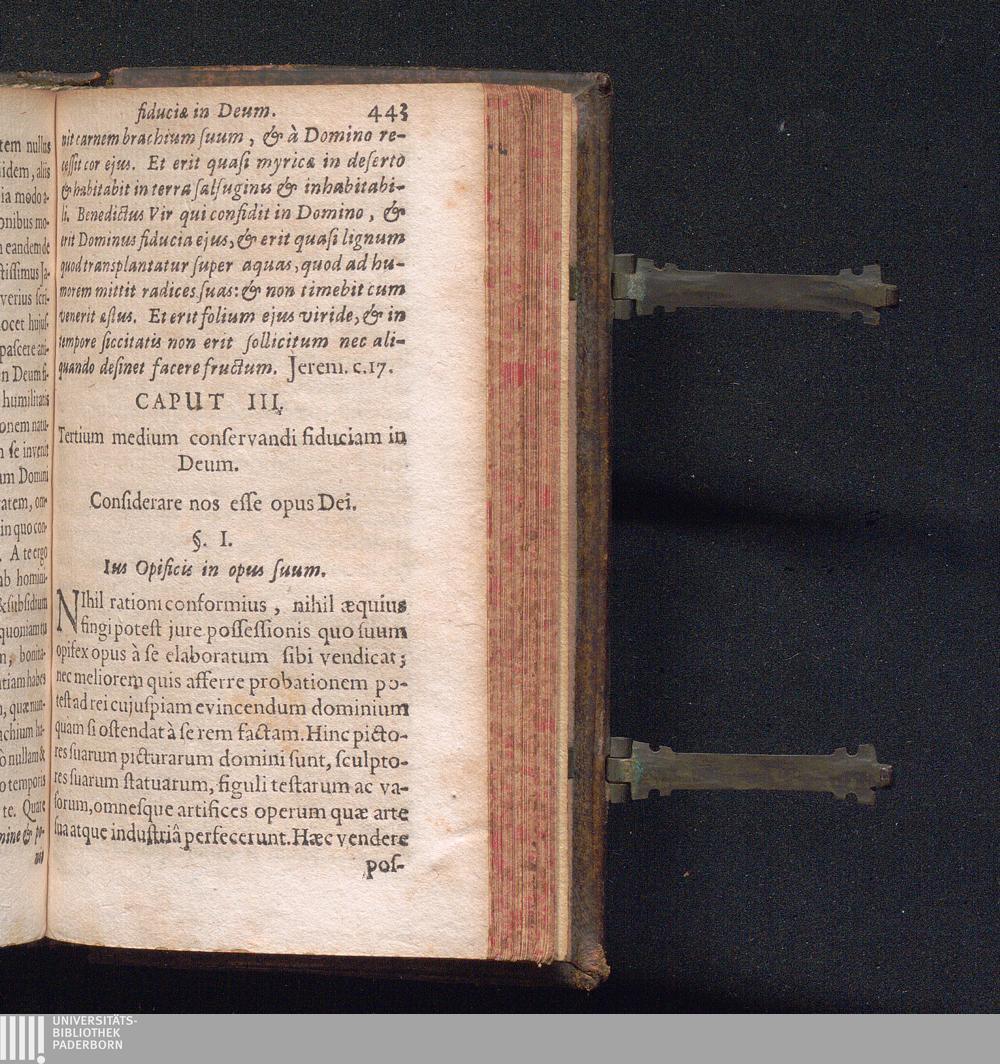 tem nullus
idem, aliis
ia modo a-
onibus mo-
n eandem de
ctissimus Ja-
verius scri-
ocet hujus-
pascere ani-
n Deum fi-
humilitatis
onem natu-
n se invenit
um Domini
ratem, om-
in quo con-
. A te ergo
ab homini-
& subsidium
quoniam tu
n, bonita-
tiam habes
, quæ nun-
chium ha-
o nullam &
o temporis
te. Quare
mine & po-
nit
fiduciæ in Deum. 443
nit carnem brachium suum, & à Domino re-
cessit cor ejus. Et erit quasi myricæ in deserto
& habitabit in terra salsuginis & inhabitabi-
li. Benedictus Vir qui confidit in Domino, &
erit Dominus fiducia ejus, & erit quasi lignum
quod transplantatur super aquas, quod ad hu-
morem mittit radices suas: & non timebit cum
venerit æstus. Et erit folium ejus viride, & in
tempore siccitatis non erit sollicitum nec ali-
quando desinet facere fructum. Jerem. c. 17.
CAPUT III.
Tertium medium conservandi fiduciam in
Deum.
Considerare nos esse opus Dei.
§. I.
Ius Opificis in opus suum.
NIhil rationi conformius, nihil æquius
fingi potest jure possessionis quo suum
opifex opus à se elaboratum sibi vendicat;
nec meliorem quis afferre probationem po-
test ad rei cujuspiam evincendum dominium
quam si ostendat à se rem factam. Hinc picto-
res suarum picturarum domini sunt, sculpto-
res suarum statuarum, figuli testarum ac va-
sorum, omnesque artifices operum quæ arte
sua atque industriâ perfecerunt. Hæc vendere
pos-
UNIVERSITÄTS-
BIBLIOTHEK
PADERBORN